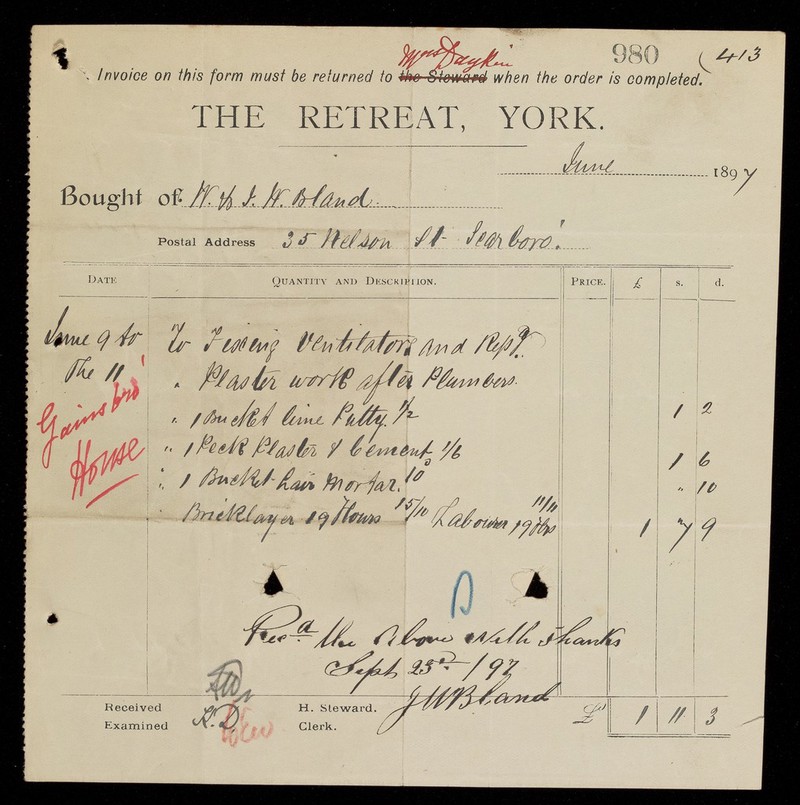 980 (413
Mrs Daykin
Invoice on this form must be returned to the Steward when the order is completed.
THE RETREAT, YORK.
June 1897
Bought of W. & J. W. Bland
Postal Address 35 Nelson St Scarboro'.
DATE QUANTITY AND DESCRIPTION. PRICE. £ s. d.
June 9 to To Fixeing Ventilators and Repg.
The 11 " Plaster work after Plumbers.
Gainsbro' House
" 1 Bucket lime Putty. 1/2 1 2
" 1 Peck Plaster & Cement 1/6 1 6
" 1 Bucket hair Mortar. 10d " 10
Bricklayer 19 Hours 15/10 Labourer 19 Hrs 11/11 1 7 9
Recd the Above With Thanks
Sept 23rd /97
JWBland
Received H. Steward. £ 1 11 3
Examined K.D. Clerk.